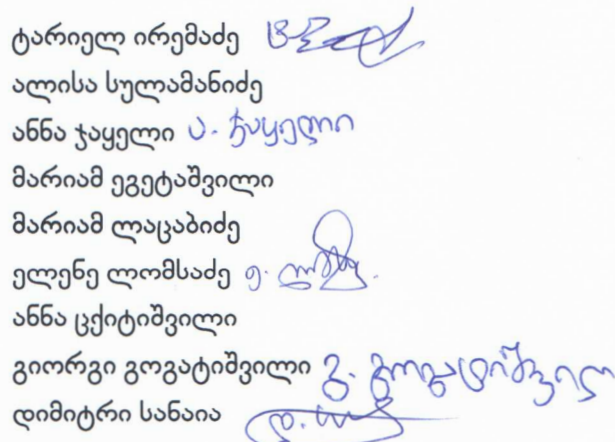 ტარიელ ირემაძე
ალისა სულამანიძე
ანნა ჯაყელი ა. ჯაყელი
მარიამ ეგეტაშვილი
მარიამ ლაცაბიძე
ელენე ლომსაძე ე.
ანნა ცქიტიშვილი
გიორგი გოგატიშვილი გ. გოგატიშვილი
დიმიტრი სანაია დ.